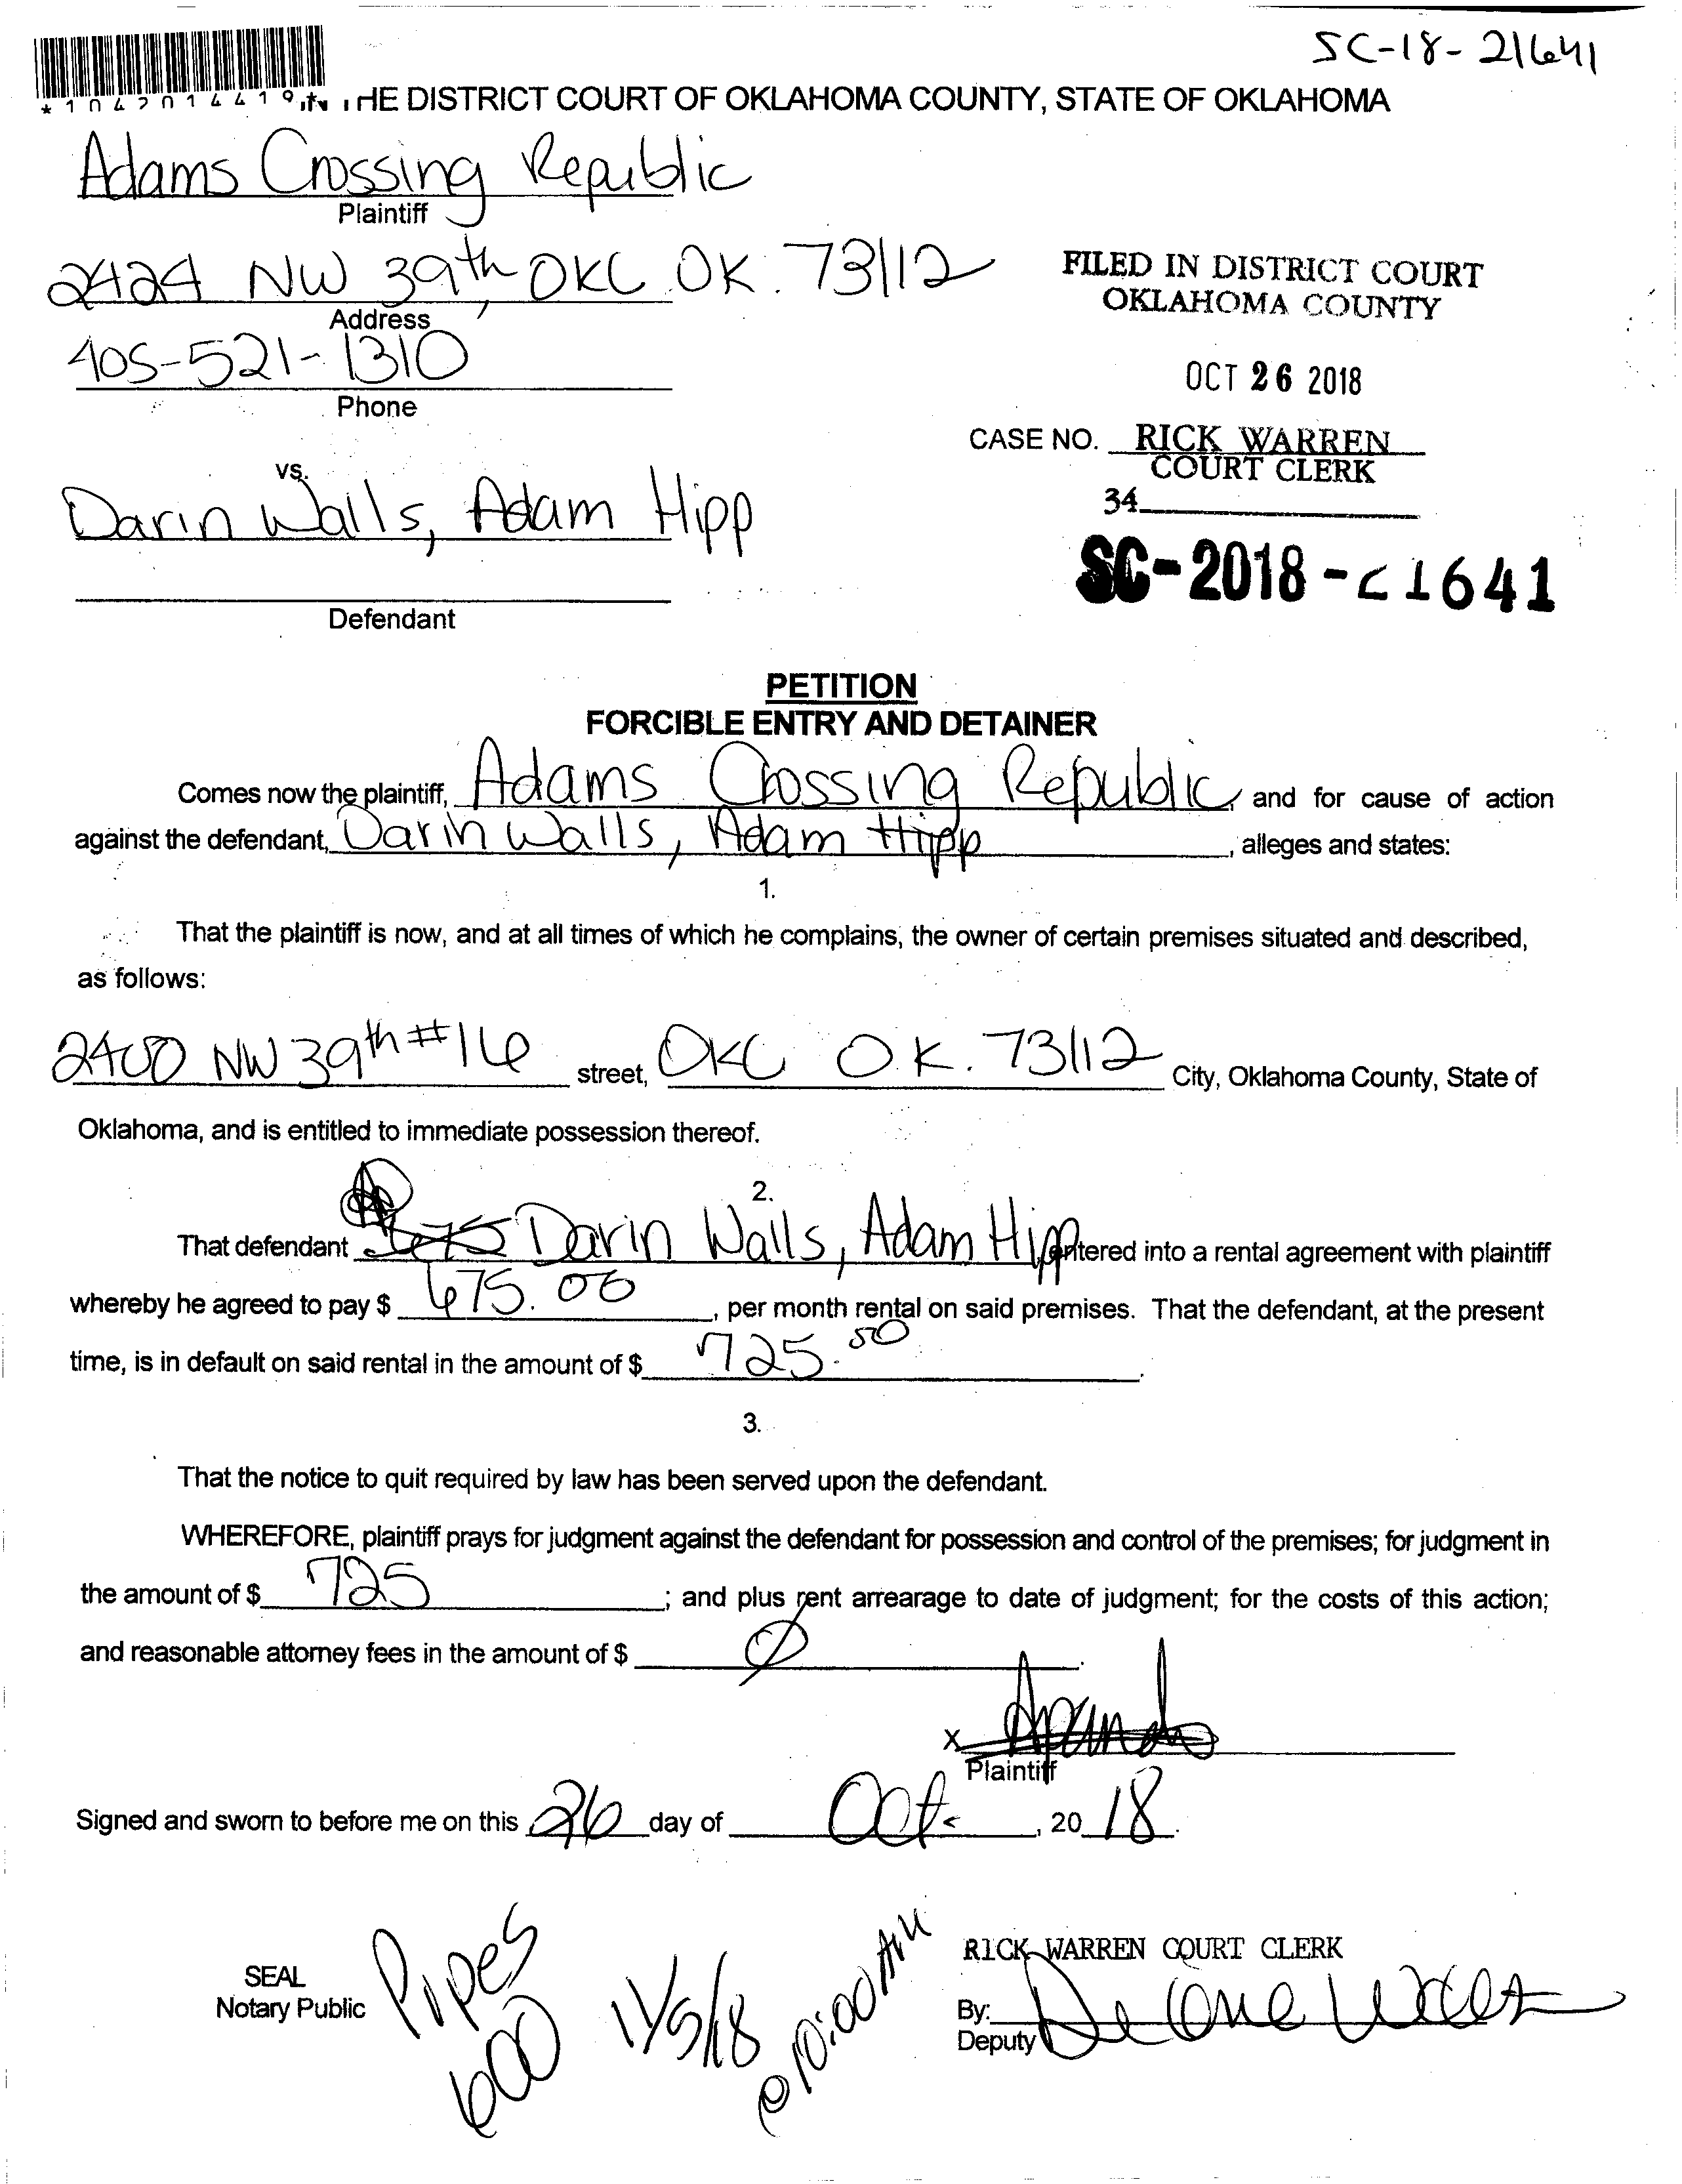 SC-18-21641
THE DISTRICT COURT OF OKLAHOMA COUNTY, STATE OF OKLAHOMA
Adams Crossing Republic
Plaintiff
2424 NW 39th, OKC OK. 73112
Address
405-521-1310
Phone
FILED IN DISTRICT COURT
OKLAHOMA COUNTY
OCT 26 2018
CASE NO. RICK WARREN
COURT CLERK
34
vs.
Darin Walls, Adam Hipp
Defendant
SC-2018-21641
PETITION
FORCIBLE ENTRY AND DETAINER
Comes now the plaintiff, Adams Crossing Republic, and for cause of action
against the defendant, Darin Walls, Adam Hipp, alleges and states:
1.
That the plaintiff is now, and at all times of which he complains, the owner of certain premises situated and described,
as follows:
2400 NW 39th #16 street, OKC OK. 73112 City, Oklahoma County, State of
Oklahoma, and is entitled to immediate possession thereof.
2.
That defendant 675 Darin Walls, Adam Hipp, entered into a rental agreement with plaintiff
whereby he agreed to pay $ 675.00, per month rental on said premises. That the defendant, at the present
time, is in default on said rental in the amount of $ 725.50.
3.
That the notice to quit required by law has been served upon the defendant.
WHEREFORE, plaintiff prays for judgment against the defendant for possession and control of the premises; for judgment in
the amount of $ 725; and plus rent arrearage to date of judgment; for the costs of this action;
and reasonable attorney fees in the amount of $ Ø.
X
Plaintiff
Signed and sworn to before me on this 26 day of Oct., 2018.
SEAL
Notary Public
Pipes
600
11/5/18
@10:00 AM
RICK WARREN COURT CLERK
By:
Deputy